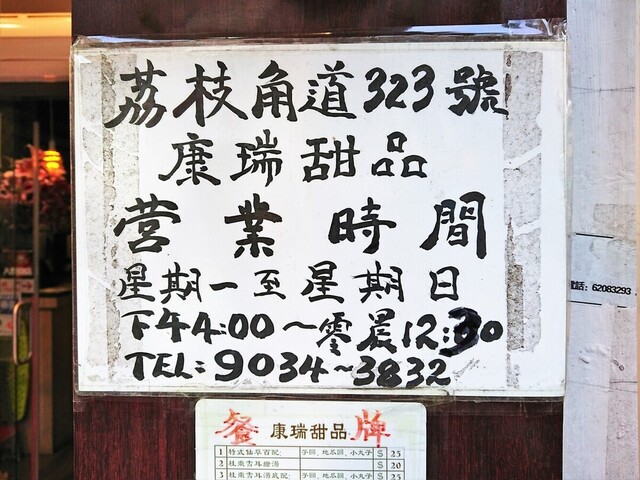 荔枝角道323號
康瑞甜品
营業時間
星期一至星期日
下午4:00～零晨12:30
TEL:9034~3832
電話：62083293
餐 康瑞甜品 牌
1 特式仙草百配： 芋圓、地瓜圓、小丸子 $ 25
2 桂棗雪耳糖湯 $ 20
3 桂棗雪耳湯底配： 芋圓、地瓜圓、小丸子 $ 25